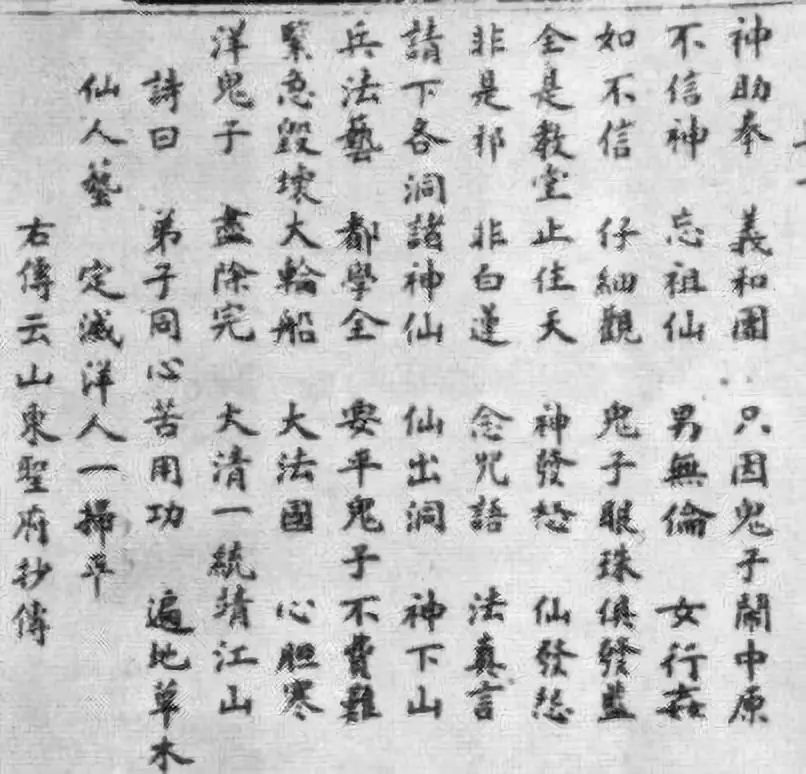 神助拳 義和團 只因鬼子鬧中原
不信神 忘祖仙 男無倫 女行姦
如不信 仔細觀 鬼子眼珠俱發藍
全是教堂止住天 神發怒 仙發怨
非是邪 非白蓮 念咒語 法真言
請下各洞諸神仙 仙出洞 神下山
兵法藝 都學全 要平鬼子不費難
緊急毀壞大輪船 大法國 心胆寒
洋鬼子 盡除完 大清一統靖江山
詩曰 弟子同心苦用功 遍地草木
仙人藝 定滅洋人一掃平
右傳云山東聖府抄傳